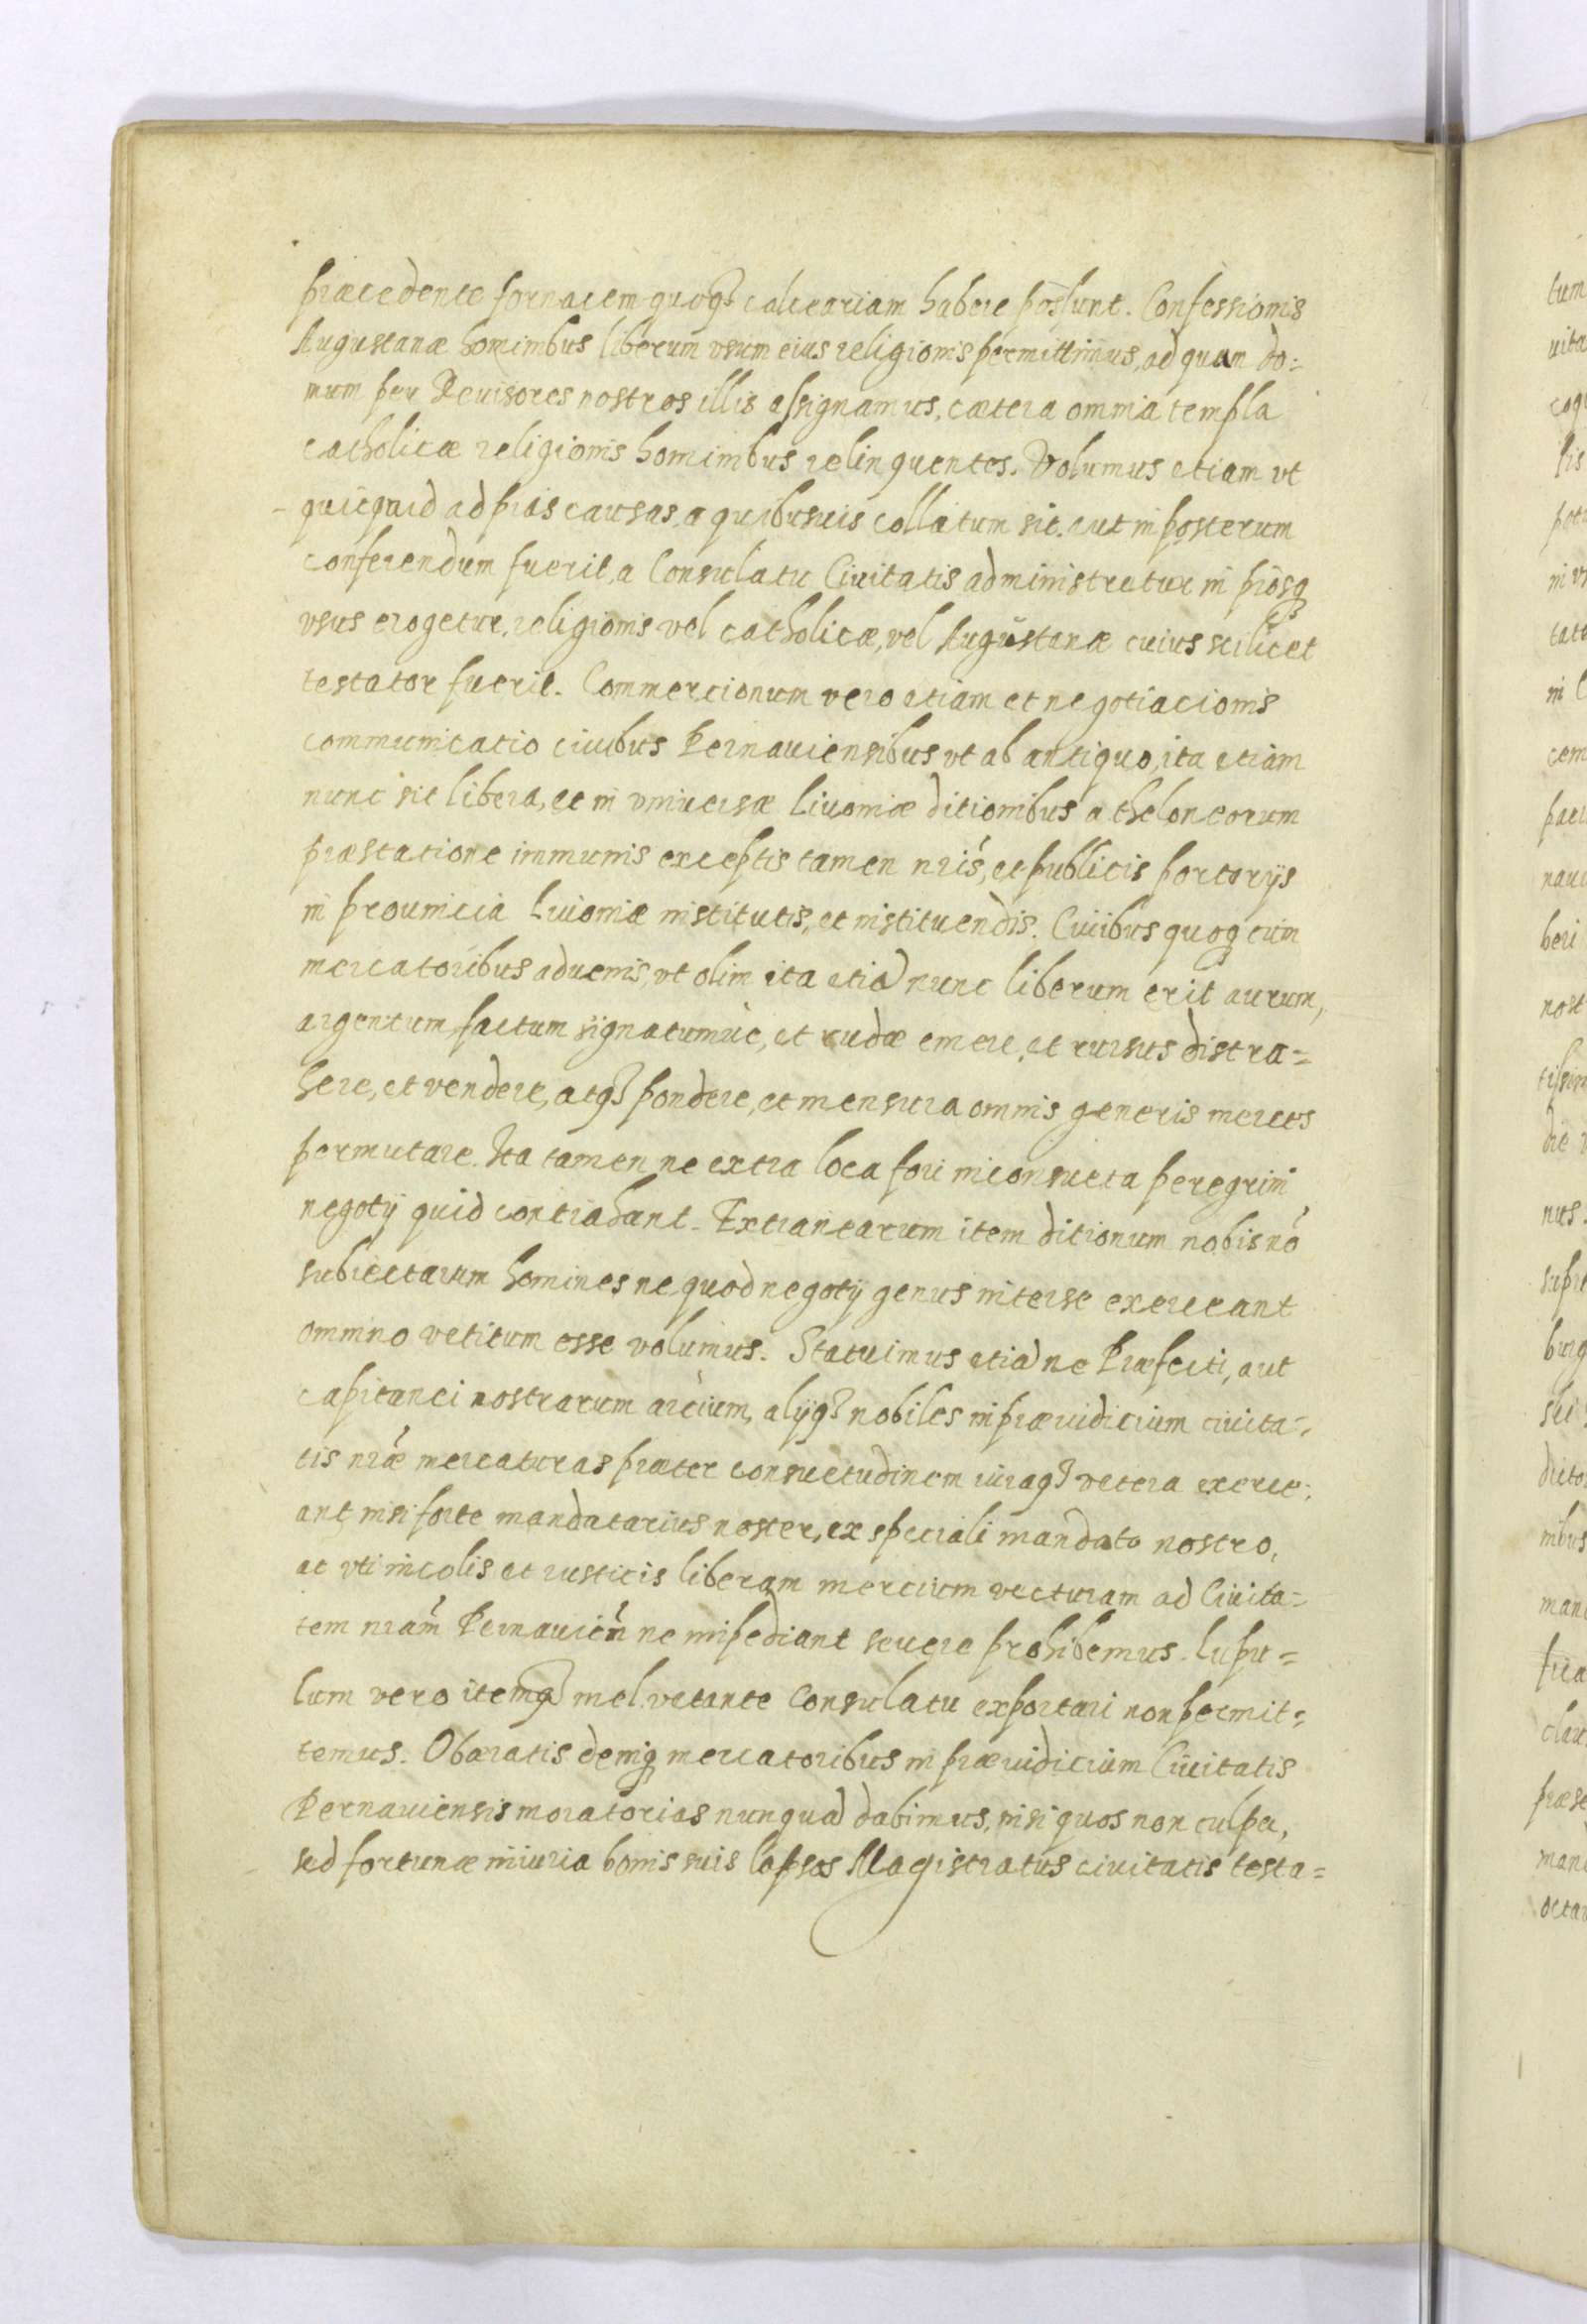 præcedente fornacem quoq3 calceariam habere possunt. Confessionis
Augustanæ hominibus liberum vsum eius religionis permittimus, ad quam do=
mum per Reuisores nostros illis assignamus, cætera omnia templa
catholicæ religionis hominibus relinquentes. Volumus etiam vt
quicquid ad pias causas, a quibusuis collatum sit, aut in posterum
conferendum fuerit, a Consulatu Ciuitatis administretur in piosq3
vsus erogetur, religionis vel catholicæ, vel Augustanæ cuius scilicet
testator fuerit. Commercionum vero etiam et negotiacionis
communicatio ciuibus Pernauiensibus vt ab antiquo, ita etiam
nunc sit libera, et in vniuersæ Liuoniæ ditionibus a theloneorum
præstatione immunis exceptis tamen nris, et publicis portorijs
in prouincia Liuoniæ institutis, et instituendis. Ciuibus quoq cum
mercatoribus aduenis, vt olim ita etia nunc liberum erit aurum,
argentum factum signatumue, et rudæ emere, et rursus distra=
here, et vendere, atq3 pondere, et mensura omnis generis merces
permutare. Ita tamen ne extra loca fori inconsueta peregrini
negotij quid contrahant. Extranearum item ditionum nobis no
subiectarum homines ne quod negotij genus inter se exerceant
omnino vetitum esse volumus. Statuimus etia ne Præfecti, aut
capitanei nostrarum arcium, alijq3 nobiles in præiudicium ciuita=
tis nræ mercaturas præter consuetudinem iuraq3 vetera exerce=
ant nisi forte mandatarius noster, ex speciali mandato nostro,
ac vti incolis et rusticis liberam mercium vecturam ad Ciuita=
tem nram Pernauien ne impediant seuere prohibemus. Lupu=
lum vero itemq3 mel vetante Consulatu exportari non permit=
temus. Obæratis deniq mercatoribus in præiudicium Ciuitatis
Pernauiensis moratorias nunqua dabimus, nisi quos non culpa,
sed fortunæ iniuria bonis suis lapsos Magistratus ciuitatis testa=